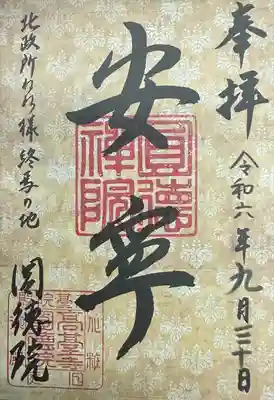 奉拝
令和六年九月三十日
安寧
圓德
禅院
北政所ねね様終焉の地
圓徳院